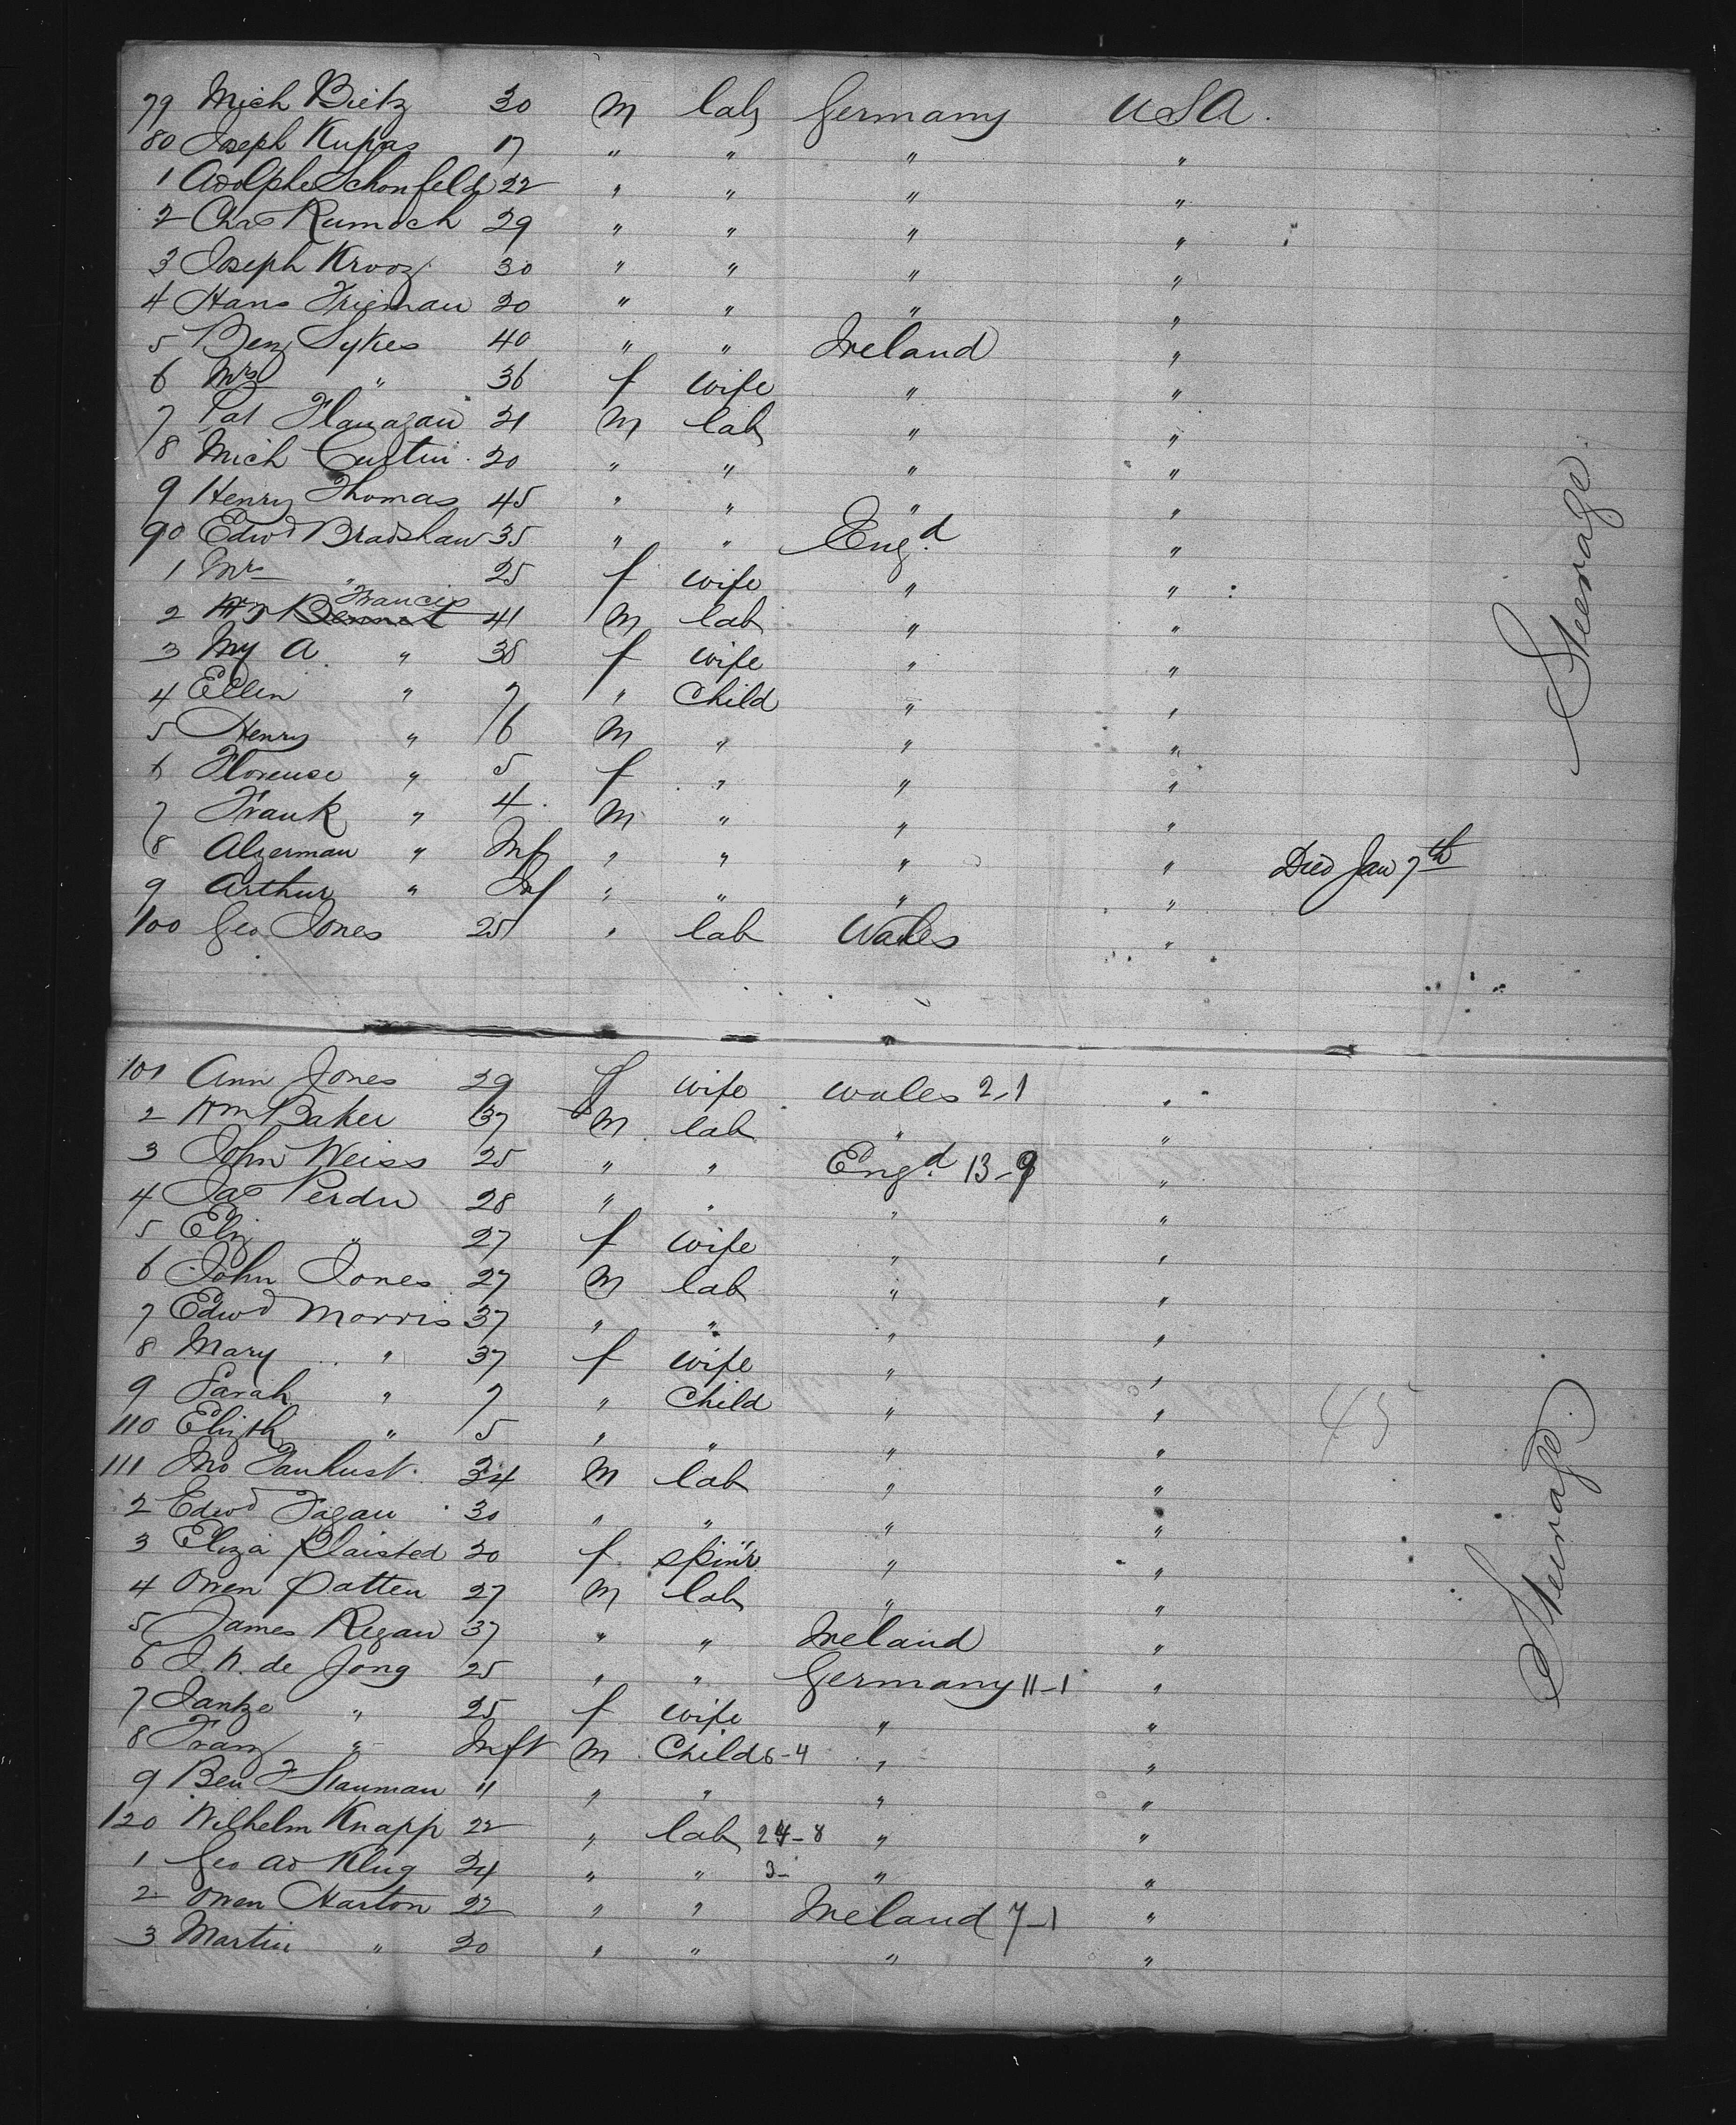 79 Mich Bietz 30 m lab Germany USA.
80 Joseph Kupas 17 " " " "
1 Adolphe Schonfeld 22 " " " "
2 Chas Rumoch 29 " " " "
3 Joseph Krooz 30 " " " "
4 Hans Frieman 20 " " " "
5 Benj Sykes 40 " " Ireland "
6 Mrs " 36 f wife " "
7 Pat Flanagan 21 m lab " "
8 Mich Curtin 20 " " " "
9 Henry Thomas 45 " " " "
90 Edwd Bradshaw 35 " " Engd "
1 Mrs " 25 f wife " "
Francis
2 Wm Bennet 41 m lab " "
3 My A " 35 f wife " "
4 Ellen " 7 " Child " "
5 Henry " 6 m " " "
6 Florense " 5 f " " "
7 Frank " 4 m " " "
8 Algerman " Inf " " " " Died Jan 7th
9 Arthur " Inf " " " "
100 Geo Jones 25 " lab Wales "
Steerage
101 Ann Jones 29 f wife Wales 2-1 "
2 Wm Baker 37 m lab " "
3 John Weiss 25 " " Engd 13-9 "
4 Jas Perdu 28 " " " "
5 Eliz " 27 f wife " "
6 John Jones 27 m lab " "
7 Edwd Morris 37 " " " "
8 Mary " 37 f wife " "
9 Sarah " 7 " Child " "
110 Elizth " 5 " " " "
111 Jno 34 m lab " "
2 Edwd Fagan 30 " " " "
3 Eliza Plaisted 20 f spin'r " "
4 Owen Patten 27 m lab " "
5 James Regan 37 " " Ireland "
6 J. N. de Jong 25 " " Germany 11-1 "
7 Jantze " 25 f wife " "
8 Franz " Inft m Child 6-4 " "
9 Ben F Stauman 11 " " " "
120 Wilhelm Knapp 22 " lab 24-8 " "
1 Geo Ad Klug 24 " " 3- " "
2 Owen Harton 22 " " Ireland 7-1 "
3 Martin " 20 " " " "
45
Steerage